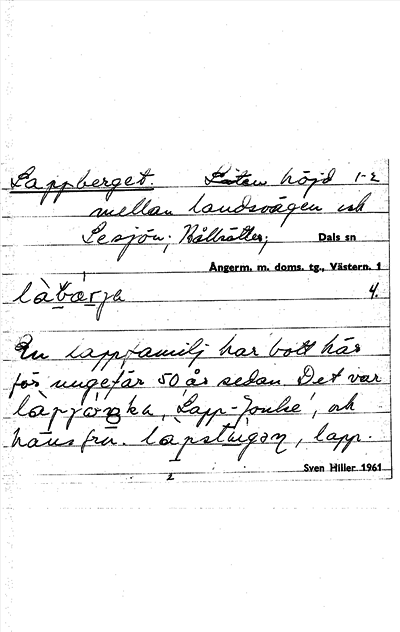 Lappberget. Liten höjd 1-2
mellan landsvägen och
Lesjön; Dals sn
Ångerm. m. doms. tg., Västern. 1
4.
En lappfamilj har bott här
för ungefär 50 år sedan. Det var
'Lapp-Jonke', och
hans fru. lapp.
Sven Hiller 1961
2